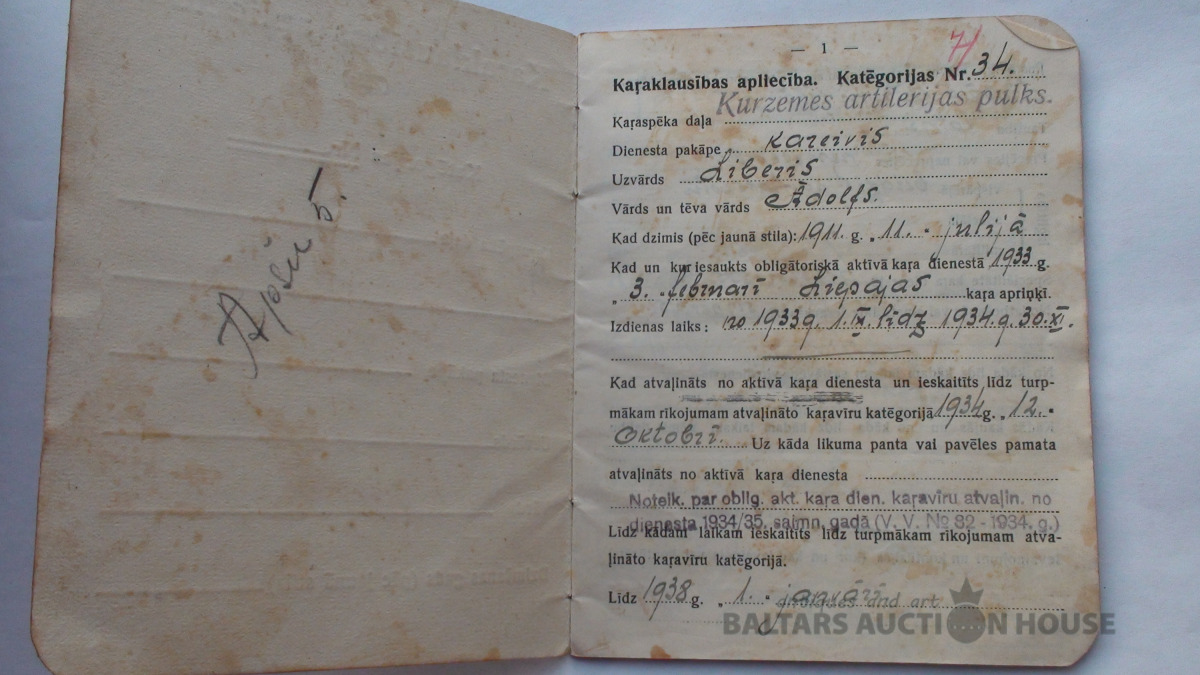 Apšu 5.
— 1 —
Kaŗaklausības apliecība. Katēgorijas Nr. 34.
Kurzemes artilerijas pulks.
Kaŗaspēka daļa
Dienesta pakāpe kareivis
Uzvārds Liberis
Vārds un tēva vārds Ādolfs.
Kad dzimis (pēc jaunā stila): 1911. g. „ 11. " jūlijā
Kad un kur iesaukts obligātoriskā aktīvā kaŗa dienestā 1933 g.
„ 3. " februarī Liepajas kaŗa apriņķī.
Izdienas laiks: no 1933g. 1. IX. līdz 1934.g. 30. XI.
Kad atvaļināts no aktīvā kaŗa dienesta un ieskaitīts līdz turp-
mākam rīkojumam atvaļināto kaŗavīru katēgorijā 1934 g. „ 12. "
Oktobrī. Uz kāda likuma panta vai pavēles pamata
atvaļināts no aktīvā kaŗa dienesta
Noteik. par oblig. akt. kaŗa dien. kaŗavīru atvaļin. no
dienesta 1934/35. saimn. gadā (V. V. № 82 - 1934. g.)
Līdz kādam laikam ieskaitīts līdz turpmākam rīkojumam atva-
ļināto kaŗavīru katēgorijā.
Līdz 1938 g. „ 1. " janvārī
antiques and art
BALTARS AUCTION HOUSE